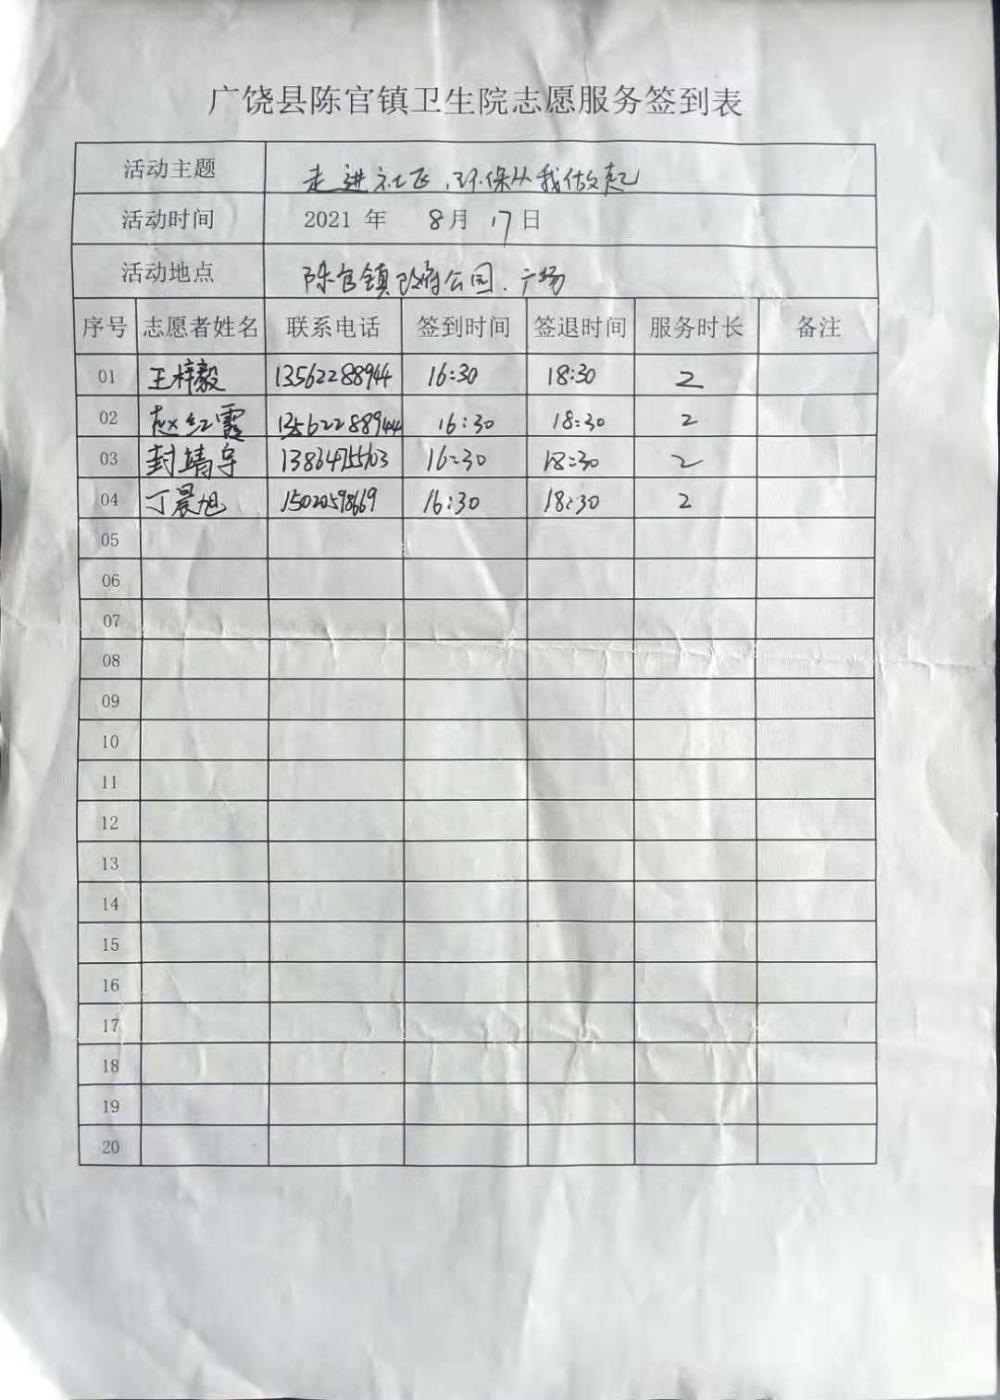 广饶县陈官镇卫生院志愿服务签到表
活动主题 走进社区，环保从我做起
活动时间 2021 年 8月 17日
活动地点 陈官镇政府公园、广场
序号 志愿者姓名 联系电话 签到时间 签退时间 服务时长 备注
01 王梓毅 13562288944 16:30 18:30 2
02 赵红霞 13562288944 16:30 18:30 2
03 封靖宇 16:30 18:30 2
04 丁晨旭 15020598669 16:30 18:30 2
05
06
07
08
09
10
11
12
13
14
15
16
17
18
19
20